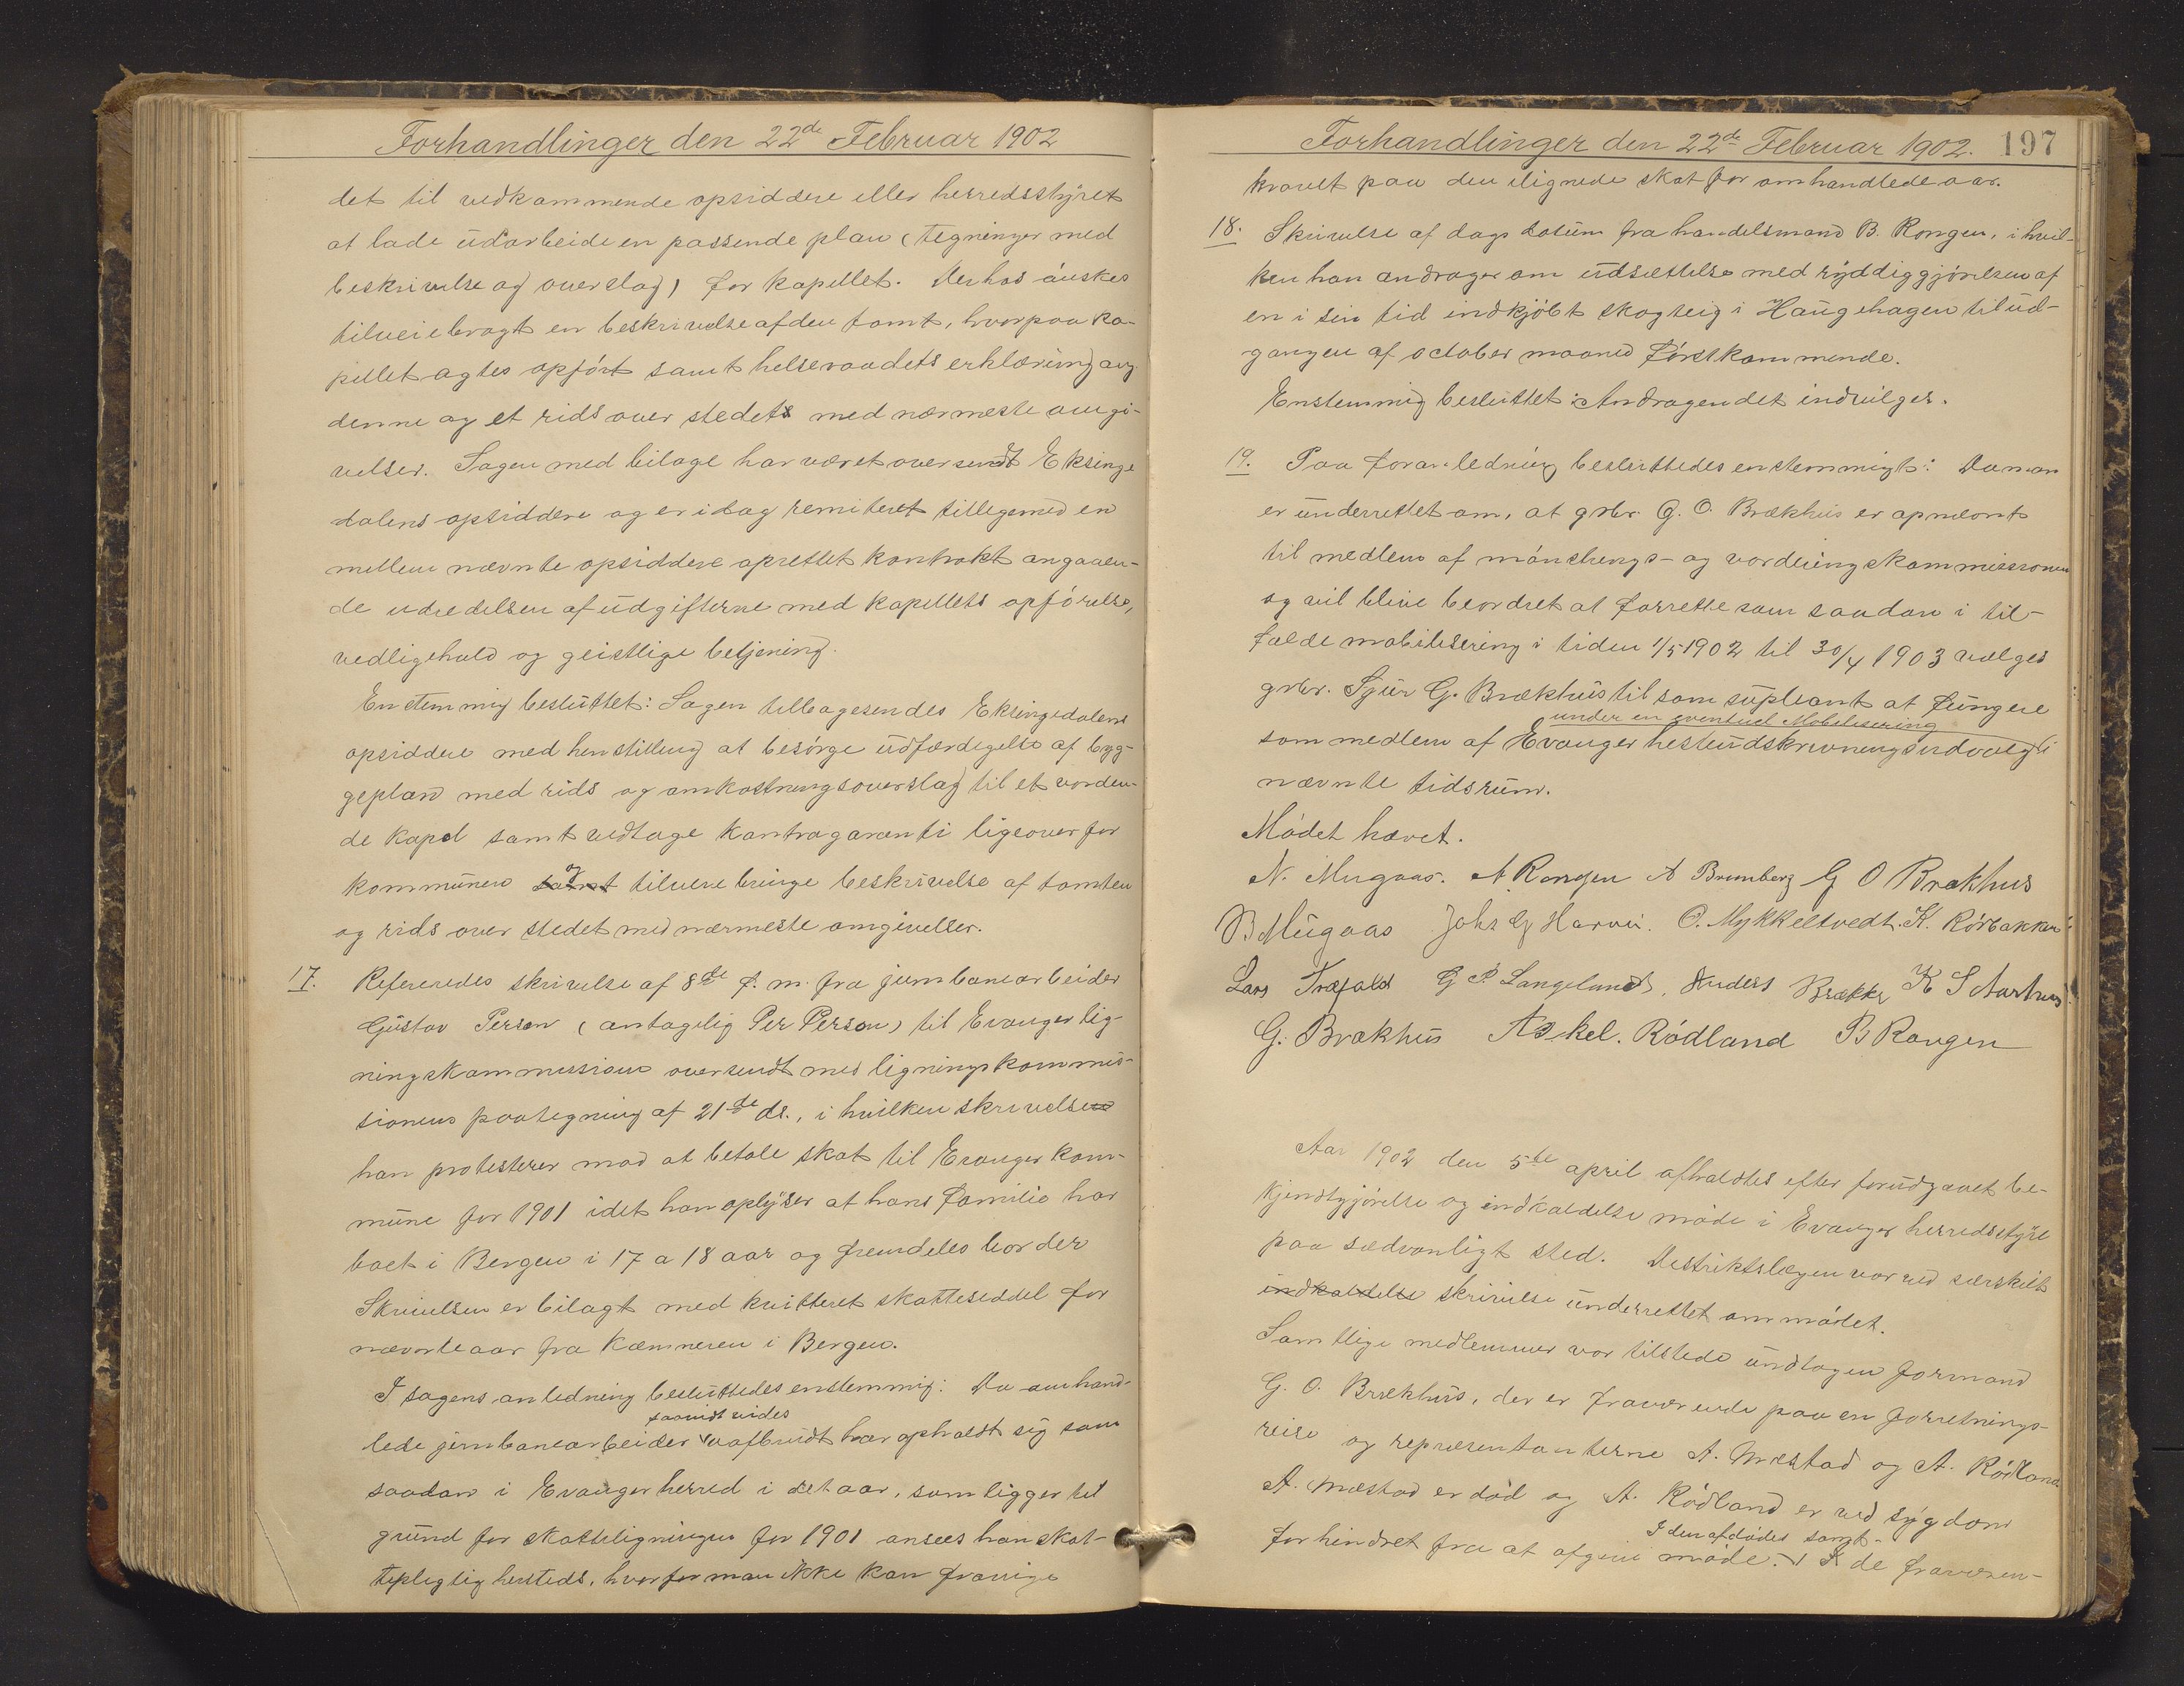 Forhandlinger den 22de Februar 1902
det til vedkommende opsiddere eller herredsstyret
at lade udarbeide en passende plan (tegninger med
beskrivelse og overslag) for kapellet. Derhos ønskes
tilveiebragt en beskrivelse af den tomt, hvorpaa ka-
pellet agtes opført samt helseraadets erklæring ang
denne og et rids over stedets med nærmeste omgi-
velser. Sagen med bilage har været oversendt Eksinge
dalens opsiddere og er idag remiteret tilligemed en
mellem nævnte opsiddere oprettet kontrakt angaaen-
de udredelsen af udgifterne med kapellets opførelse,
vedligehold og geistlige betjening.
Enstemmig besluttet: Sagen tilbagesendes Eksingedalens
opsiddere med henstilling at besørge udfærdigelse af byg-
geplan med rids og omkostningsoverslag til et vorden-
de kapel samt vedtage kontragaranti ligeoverfor
kommunen samt og tilveiebringe beskrivelse af tomten
og rids over stedet med nærmeste omgivelser.
17. Refereredes skrivelse af 8de f. m. fra jernbanearbeider
Gustav Person (antagelig Per Person) til Evanger lig-
ningskommission oversendt med ligningskommis-
sionens paategning af 21de ds., i hvilken skrivelse
han protesterer mod at betale skat til Evanger kom-
mune for 1901 idet han oplyser at hans familie har
boet i Bergen i 17 a 18 aar og fremdeles bor der
Skrivelsen er bilagt med kvitteret skatteseddel for
nævnte aar fra Kæmneren i Bergen.
I sagens anledning besluttedes enstemmig: Da omhand-
saavidt vides
lede jernbanearbeider uafbrudt har opholdt sig som
saadan i Evanger herred i det aar, som ligger til
grund for skatteligningen for 1901 ansees han skat-
tepligtig hersteds, hvorfor man ikke kan fravige
Forhandlinger den 22de Februar 1902. 197
kravet paa den ilignede skat for omhandlede aar.
18. Skrivelse af dags datum fra handelsmand B. Rongen, i hvil-
ken han andrager om udsættelse med ryddiggjørelsen af
en i sin tid indkjøbt skogteig i Haugehagen til ud-
gangen af october maaned førstkommende.
Enstemmig besluttet: Andragendet indvilges.
19. Paa foranledning besluttedes enstemmigt: Da man
er underrettet om, at grbr. G. O. Brækhus er opnævnt
til medlem af mønstrings- og vorderingskommissionen
og vil blive beordret at forrette som saadan i til-
fælde mobilisering i tiden 1/5 1902 til 30/4 1903 vælges
grbr. Sjur G. Brækhus til som supleant at fungere
under en eventuel Mobilisering
som medlem af Evanger hesteudskrivningsudvalg i
nævnte tidsrum.
Mødet hævet.
N. Mugaas. A Rongen A Brunborg G O Brækhus
B Mugaas Johs G Horvei. O. Mykkeltvedt. K. Rørbakken
Lars Træfald G P Langeland, Anders Brække K S Aarhus
G. Brækhus Askel. Rødland B Rongen
Aar 1902 den 5te april afholdtes efter forudgaaet be-
kjendtgjørelse og indkaldelse møde i Evanger herredsstyre
paa sædvanligt sted. Distriktslægen var ved særskilt
indkaldelse skrivelse underrettet om mødet.
Samtlige medlemmer var tilstede undtagen formand
G. O. Brækhus, der er fraværende paa en forretnings-
reise og repræsentanterne A. Mæstad og A. Rødland
A. Mæstad er død og A. Rødland er ved sygdom
I den afdødes samt
forhindret fra at afgive møde. I de fraværen-